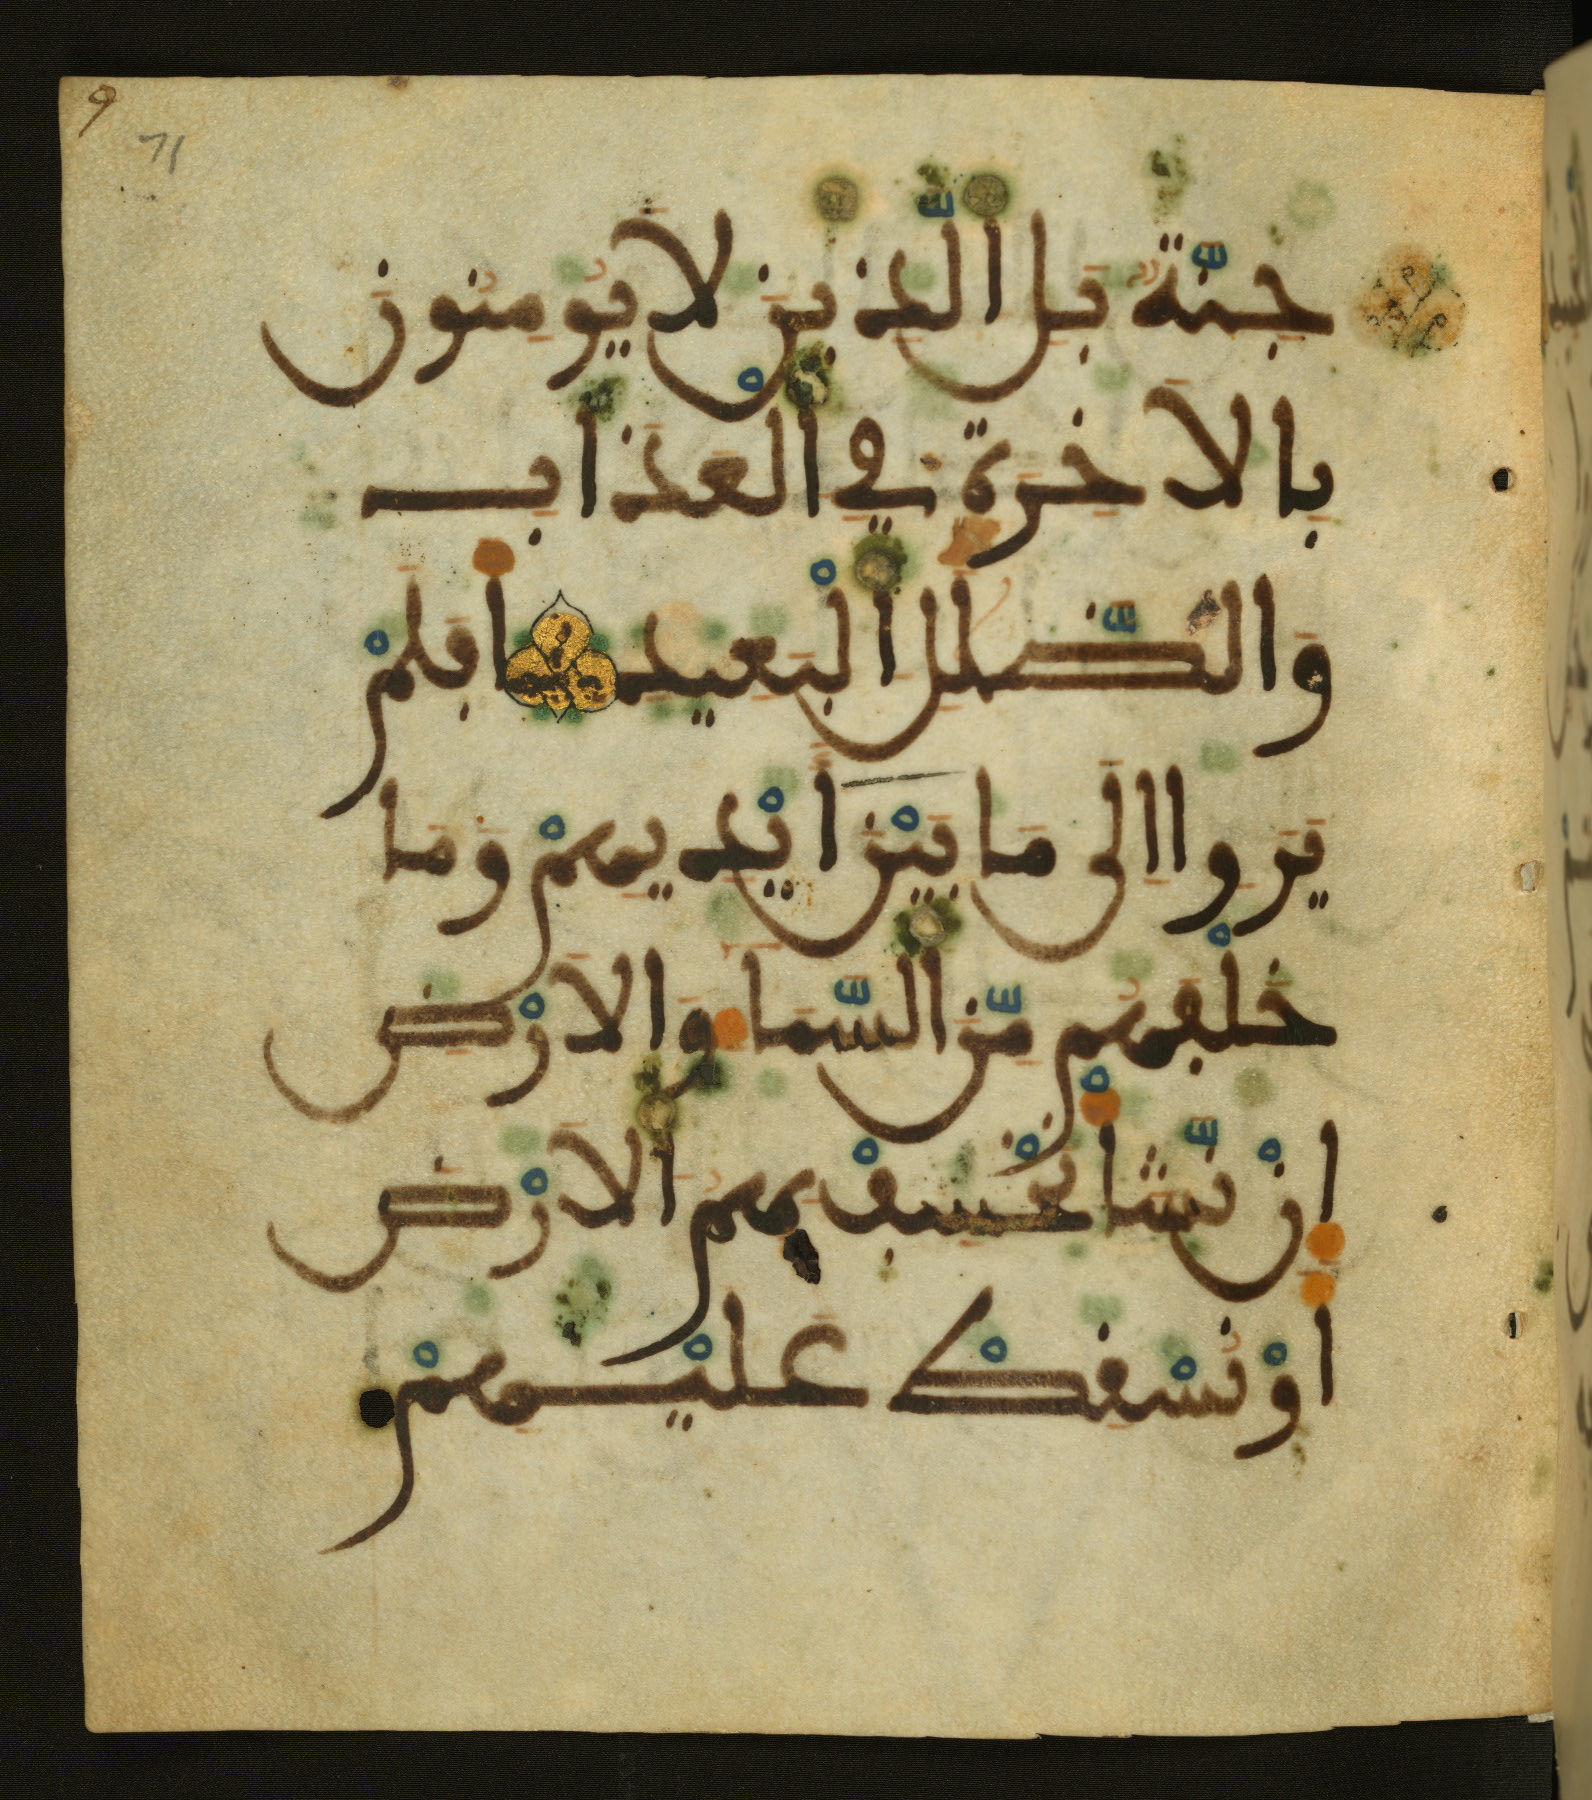 9
71
جِنَّةٌ بَلِ الَّذِينَ لَا يُومِنُونَ
بِالَاخِرَةِ فِي الْعَذَابِ
وَالضَّلَلِ الْبَعِيدِ اَفَلَمْ
يَرَوِا اِلَى مَا بَيْنَ أَيْدِيهِمْ وَمَا
خَلْفَهُم مِّنَ السَّمَا وَالَارْضِ
إِن نَّشَأْ نَخْسِفْ بِهِمُ الَارْضَ
أَوْ نُسْقِطْ عَلَيْهِمْ